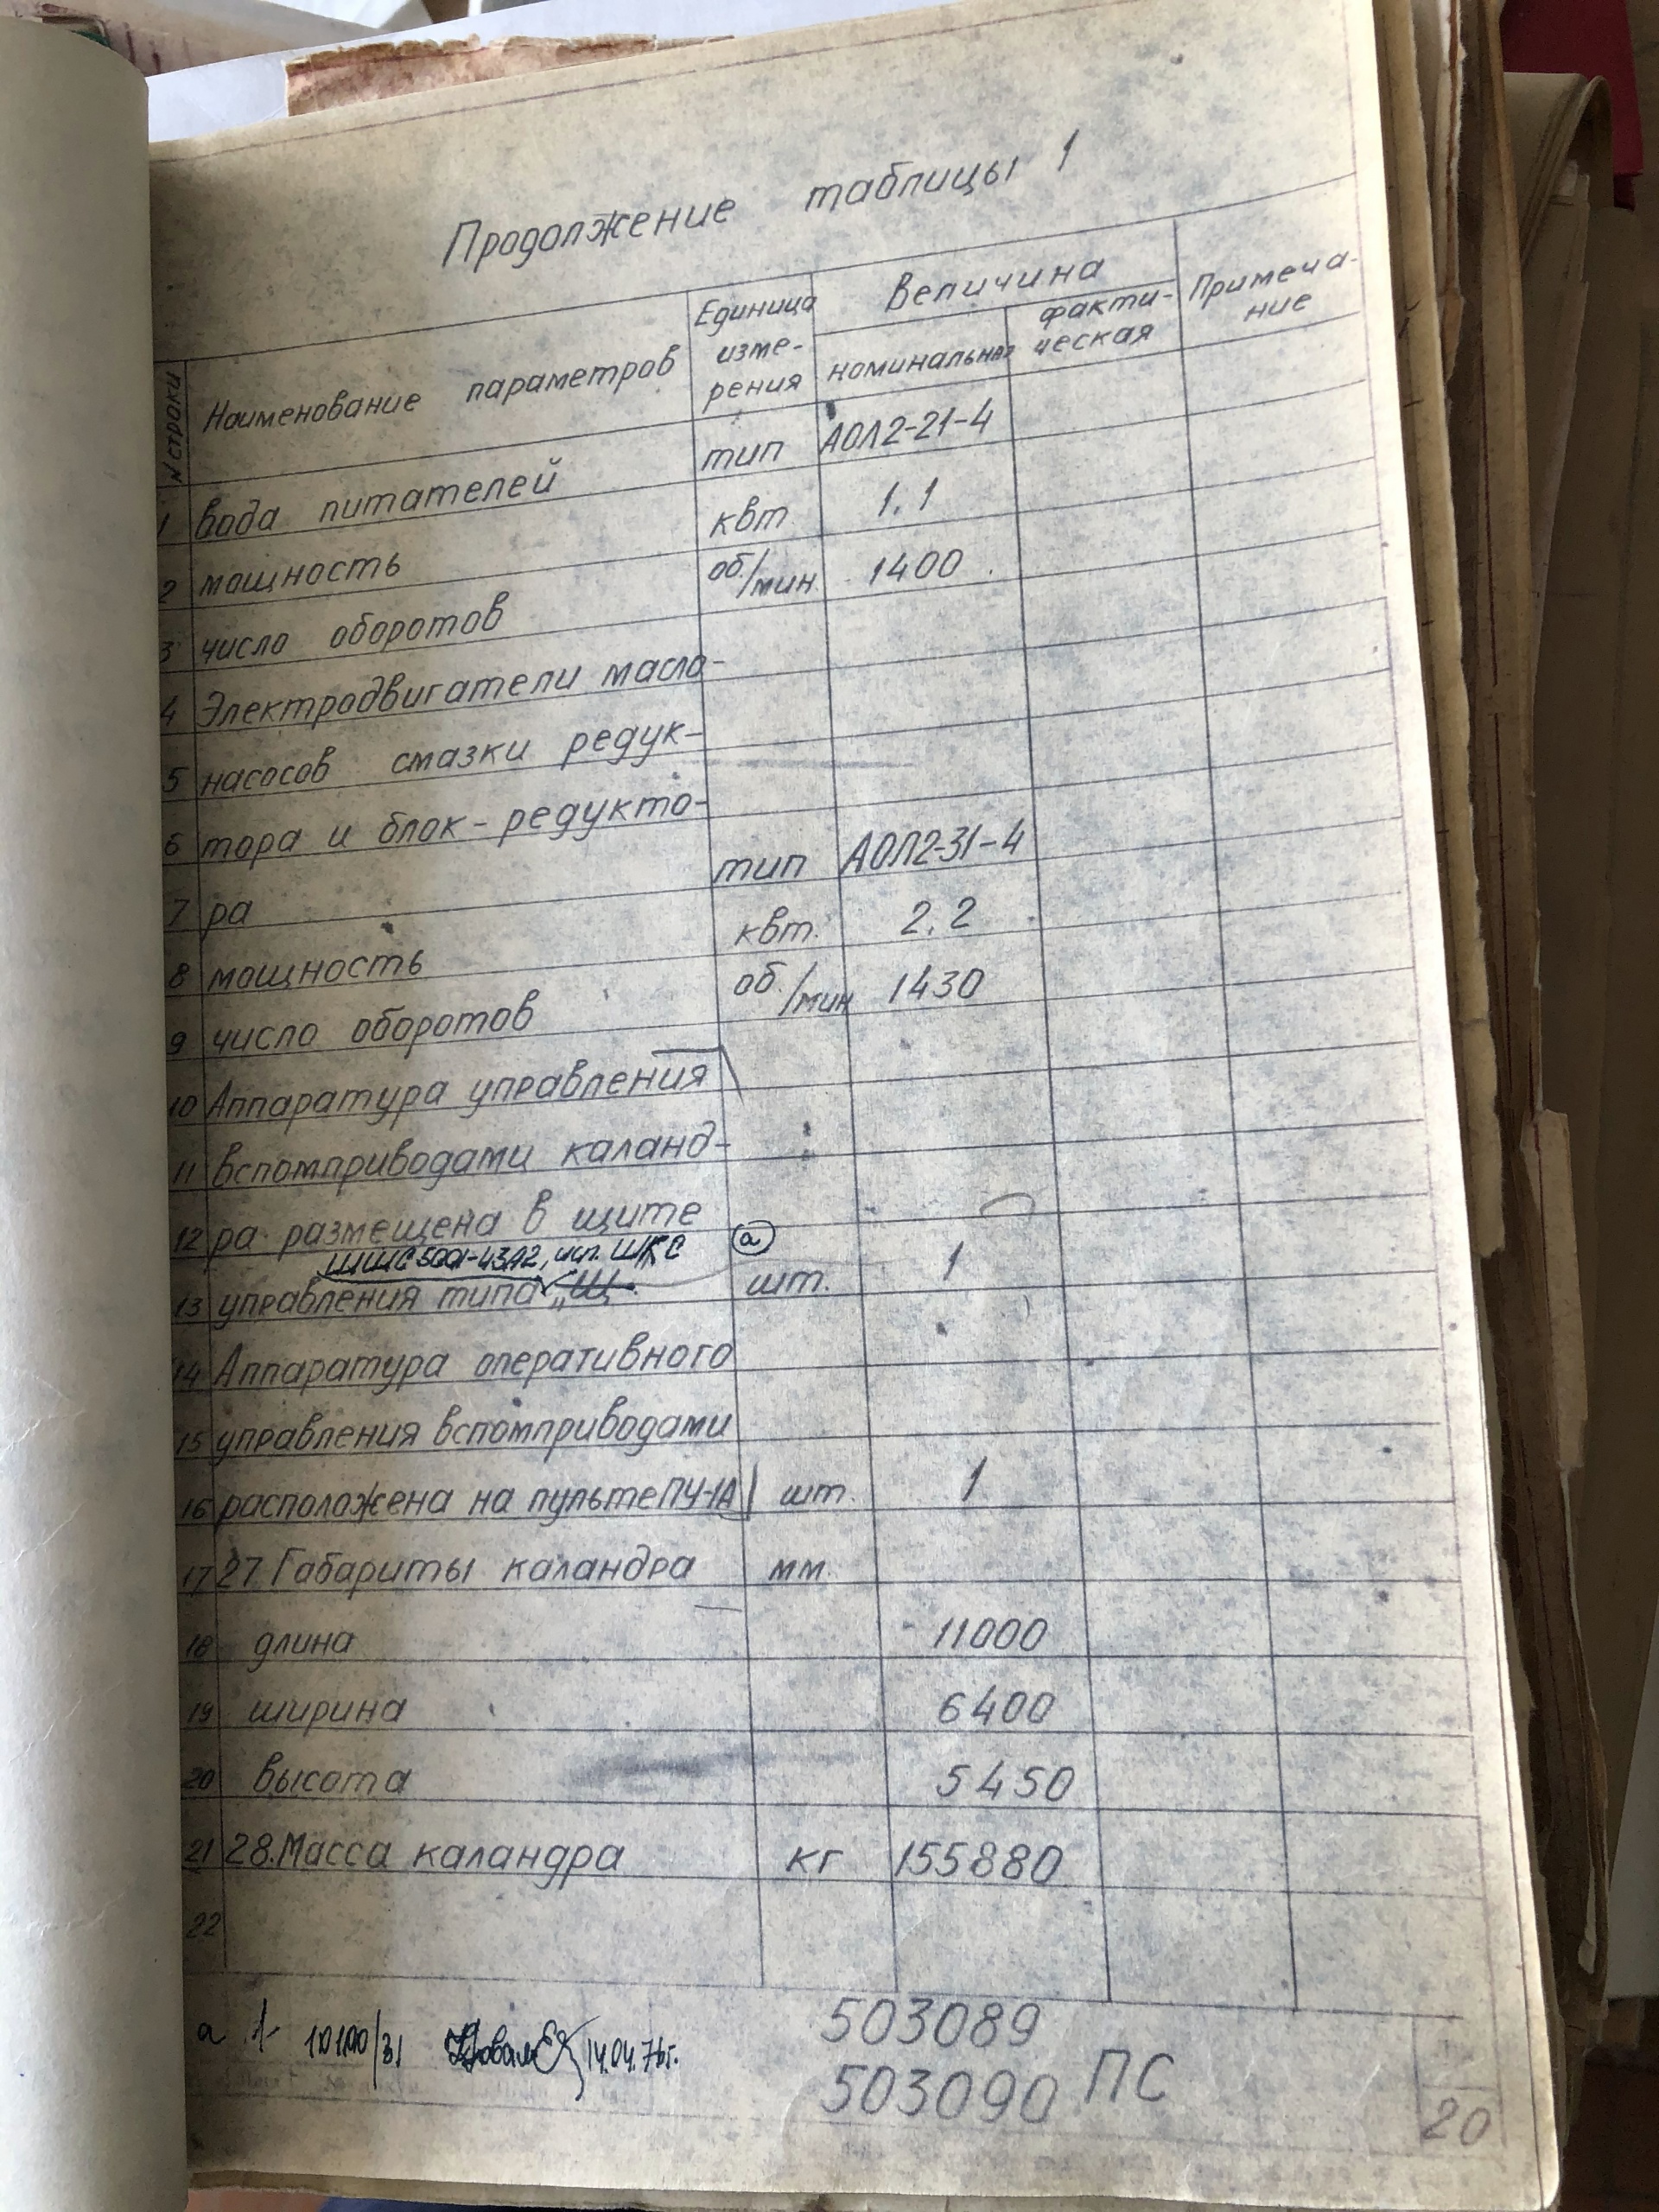 Продолжение таблицы 1
№ строки Наименование параметров Единица изме- рения Величина номинальная факти- ческая Примеча- ние
1 вода питателей тип АОЛ2-21-4
2 мощность квт 1,1
3 число оборотов об/мин. 1400
4 Электродвигатели масло-
5 насосов смазки редук-
6 тора и блок-редукто-
7 ра тип АОЛ2-31-4
8 мощность квт. 2,2
9 число оборотов об./мин 1430
10 Аппаратура управления
11 вспомприводами каланд-
12 ра размещена в щите
исп. ШКС а
13 управления типа „Щ“ шт. 1
14 Аппаратура оперативного
15 управления вспомприводами
16 расположена на пульте ПУ-1А шт. 1
17 27. Габариты каландра мм.
18 длина 11000
19 ширина 6400
20 высота 5450
21 28. Масса каландра кг 155880
22
503089
а 1 14.04.76г.
503090 ПС
20